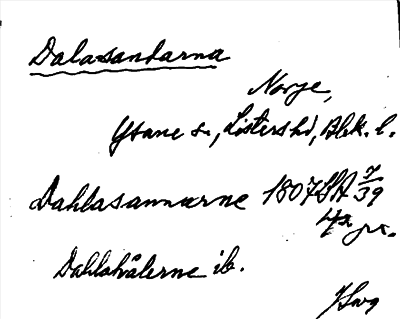 Dalasandarna
Norje,
Ysane s., Listers hd, Blek. l.
Dahlasannarne 1807 LSA 7/39
4a
Dahlahålerne ib.